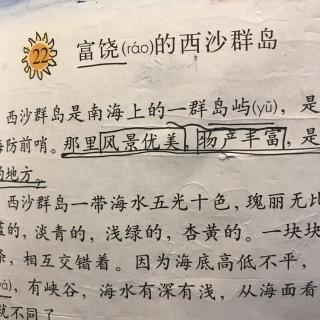 22 富饶(ráo)的西沙群岛
西沙群岛是南海上的一群岛屿(yǔ)，是
海防前哨。那里风景优美，物产丰富，是
的地方。
西沙群岛一带海水五光十色，瑰丽无比
蓝的，淡青的，浅绿的，杏黄的。一块块
条，相互交错着。因为海底高低不平，
yá)，有峡谷，海水有深有浅，从海面看
就不同了